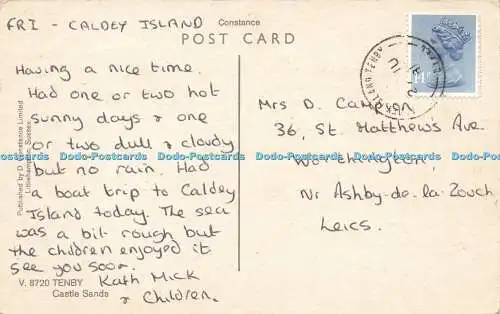 FRI - CALDEY ISLAND
Constance
POST CARD
Having a nice time.
Had one or two hot
sunny days & one
or two dull & cloudy
but no rain. Had
a boat trip to Caldey
Island today. The sea
was a bit rough but
the children enjoyed it
see you soon.
Kath Mick
& Children.
V. 8720 TENBY
Castle Sands
Published by D. Constance Limited
Littlehampton, Sussex
Mrs D. Cameron
36, St. Matthews Ave.
Worthington
Nr Ashby-de-la-Zouch
Leics.
ISLAND TENBY
Dodo-Postcards Dodo-Postcards Dodo-Postcards Dodo-Postcards Dodo-Postcards